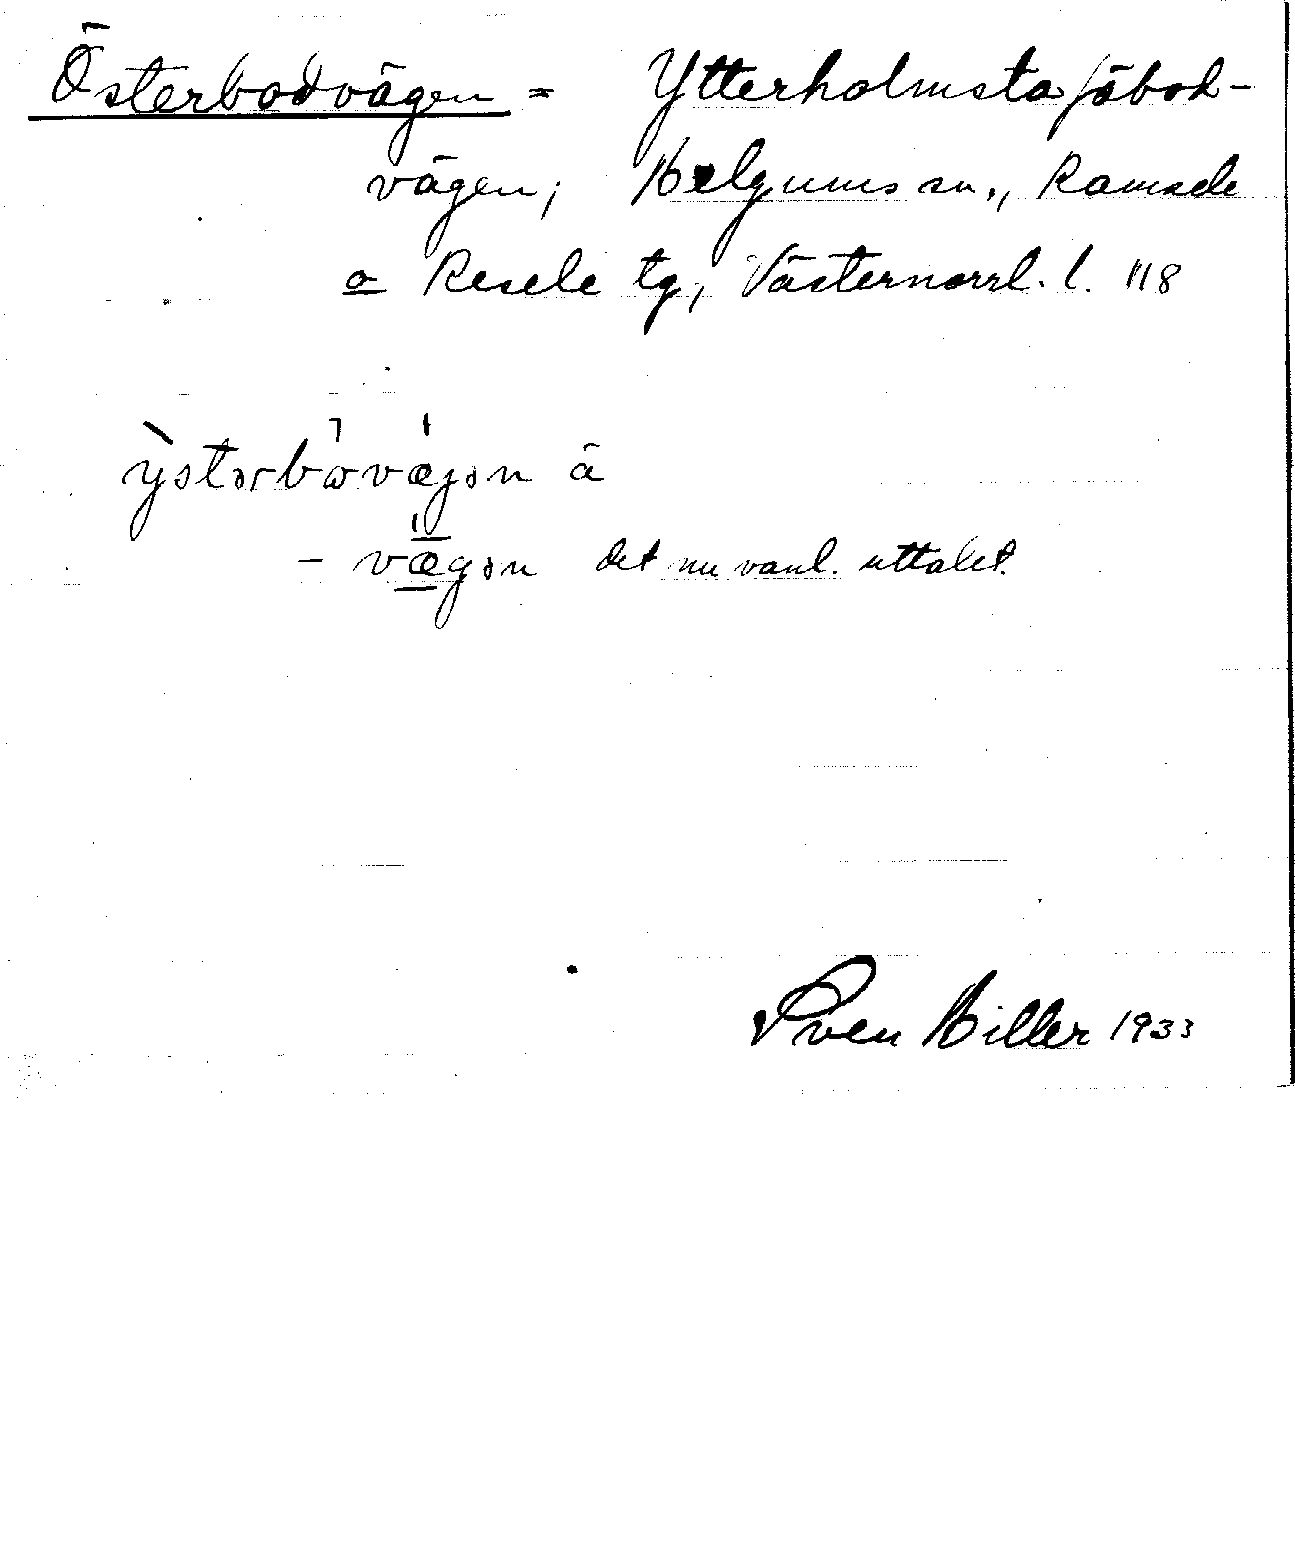 Österbodvägen = Ytterholmsta fäbod-
vägen; Helgums sn., Ramsele
o Resele tg, Västernorrl. l. 118
ystərbωvæjən ä
- vægən det nu vanl. uttalet.
Sven Hiller 1933